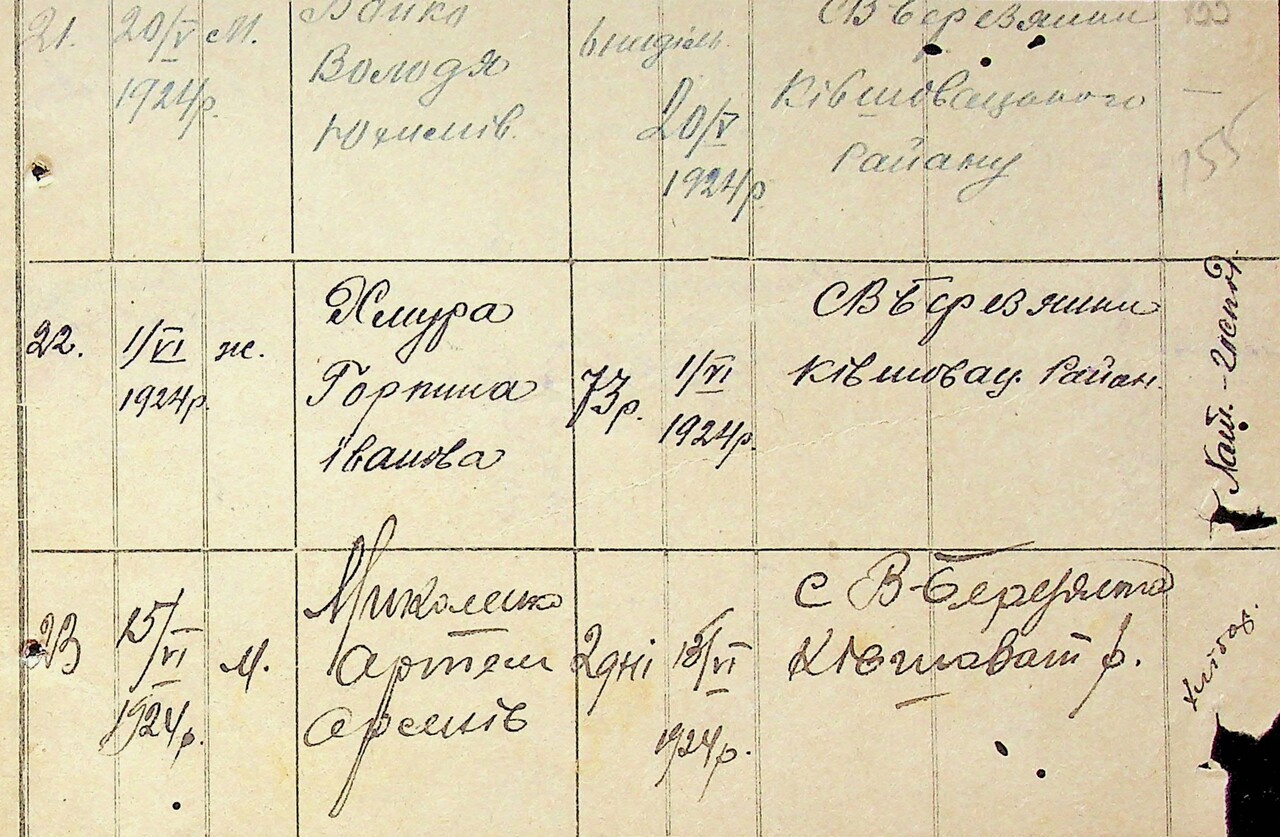 21. 20/V 1924р. м. Бойко Володя Юхимів. 6 неділь. 20/V 1924р С В Березянки Ківшовацького Району
155
22. 1/VI 1924р. ж. Хмура Горпина Іванова 73р. 1/VI 1924р. С В Березянки Ківшовац. Район.
23 15/VI 1924р. м. Миколенко Артем Арсенів 2 дні 15/VI 1924р. с В-Березянка Ківшоват р.
хлібор.